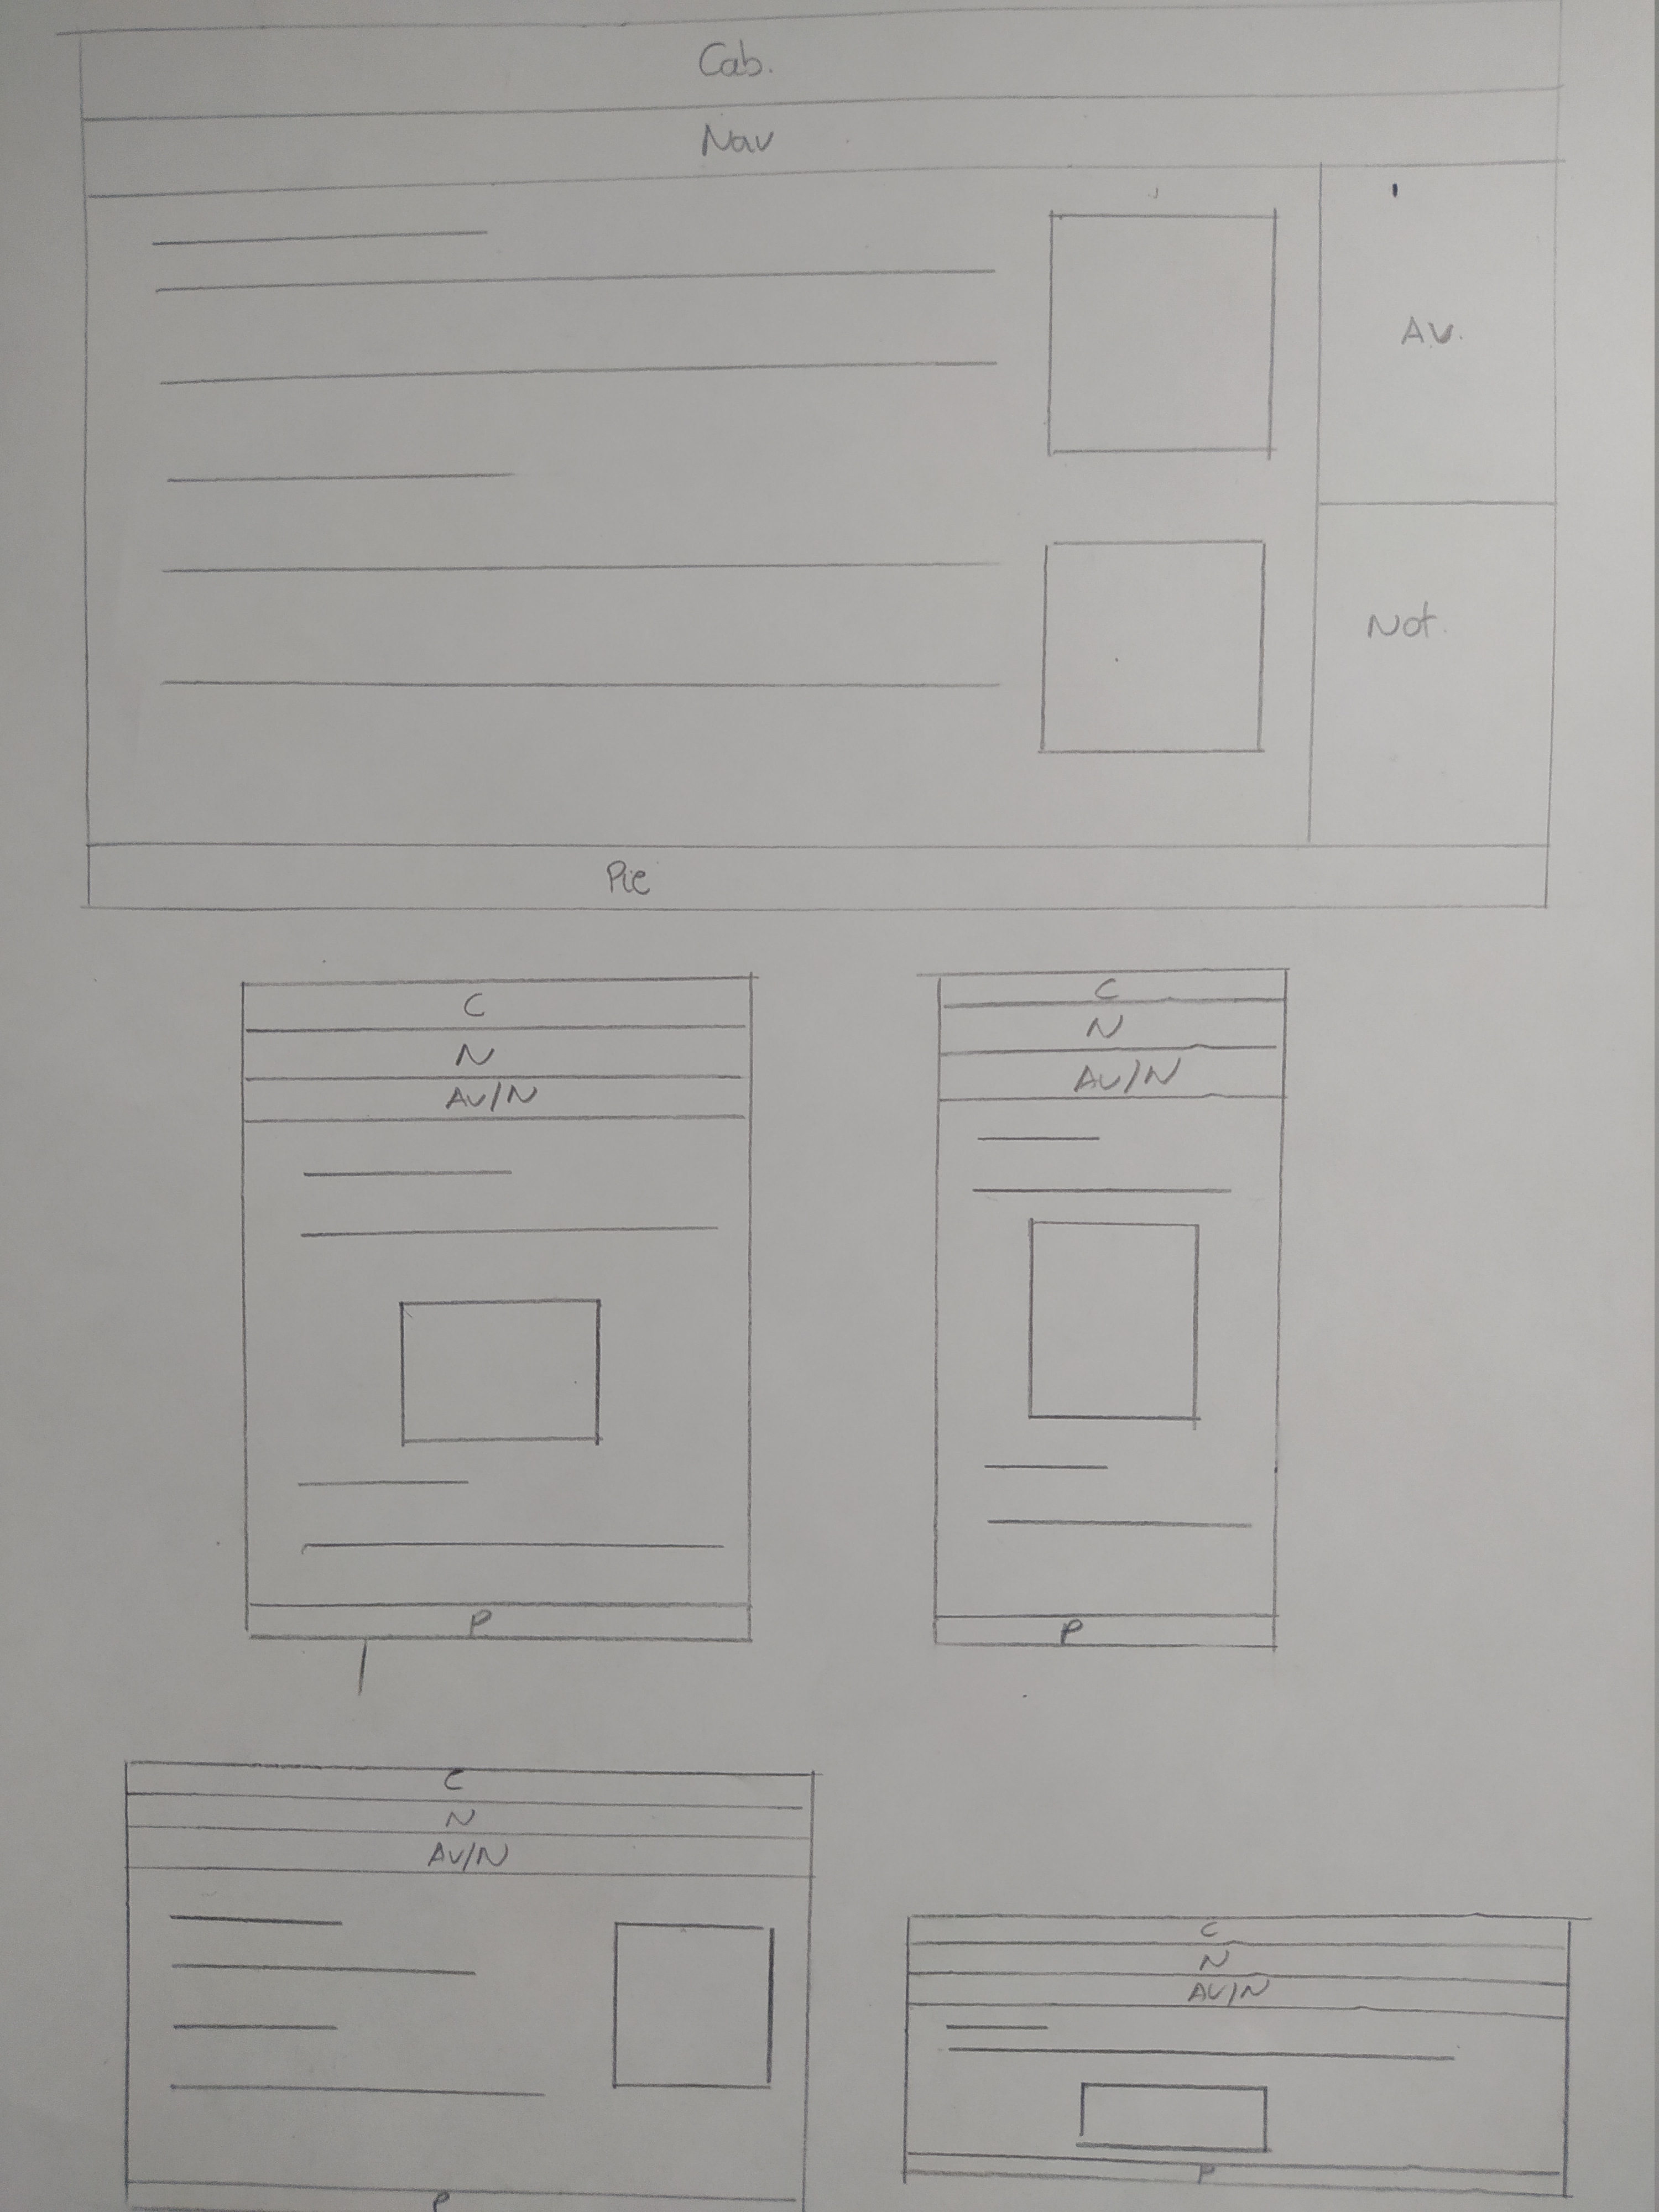 Cab.
Nav
Av.
Not.
Pie
C
N
Av/N
P
C
N
Av/N
P
C
N
Av/N
P
C
N
Av/N
P